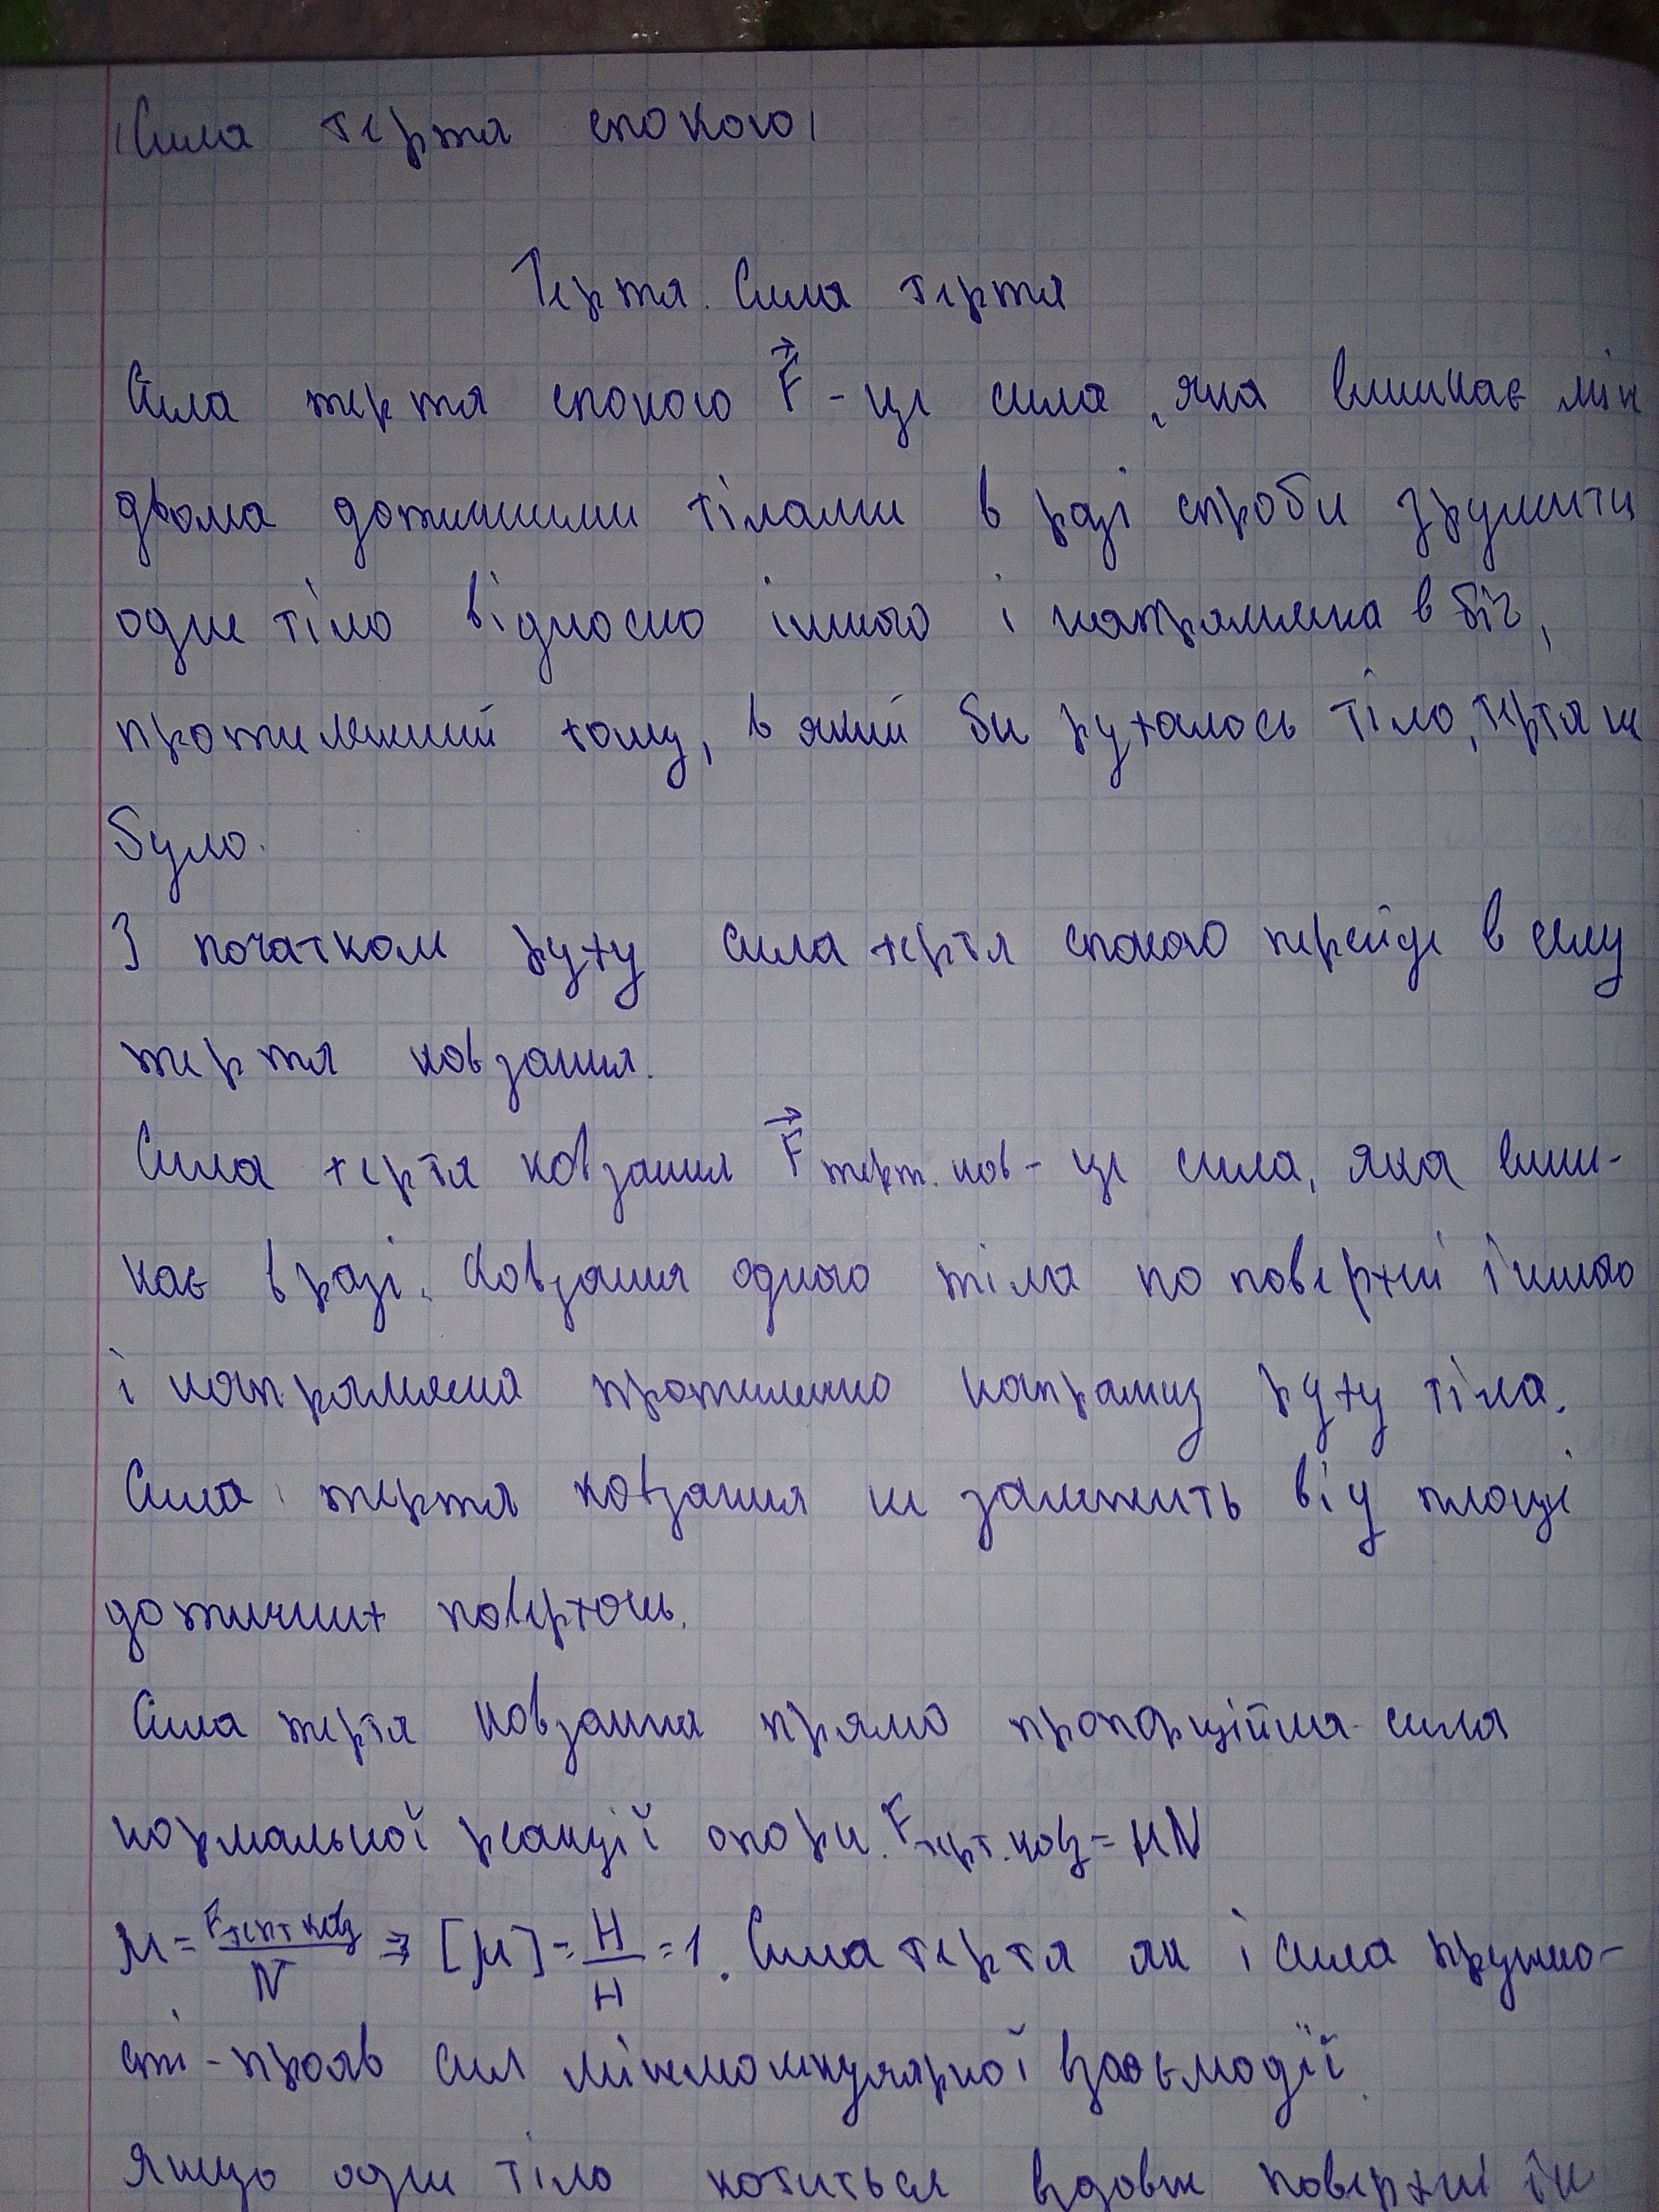 Сила тертя спокою
Тертя. Сила тертя
Сила тертя спокою F⃗ - це сила, яка виникає між
двома дотичними тілами в разі спроби зрушити
одне тіло відносно іншого і напрямлена в біч,
протилежний тому, в який би рухалось тіло, тертя не
було.
З початком руху сила тертя спокою перейде в силу
тертя ковзання.
Сила тертя ковзання F⃗ терт. ков - це сила, яка вини-
кає в разі ковзання одного тіла по поверхні іншого
і напрямлена протилежно напрямку руху тіла.
Сила тертя ковзання не залежить від площі
дотичних поверхонь.
Сила тертя ковзання прямо пропорційна сила
нормальної реакції опори. F терт. ковз = μN
μ = F терт ковз / N ⇒ [μ] = Н/Н = 1. Сила тертя як і сила пружно-
сті - прояв сил міжмолекулярної взаємодії.
Якщо одне тіло котиться вздовж поверхні ін